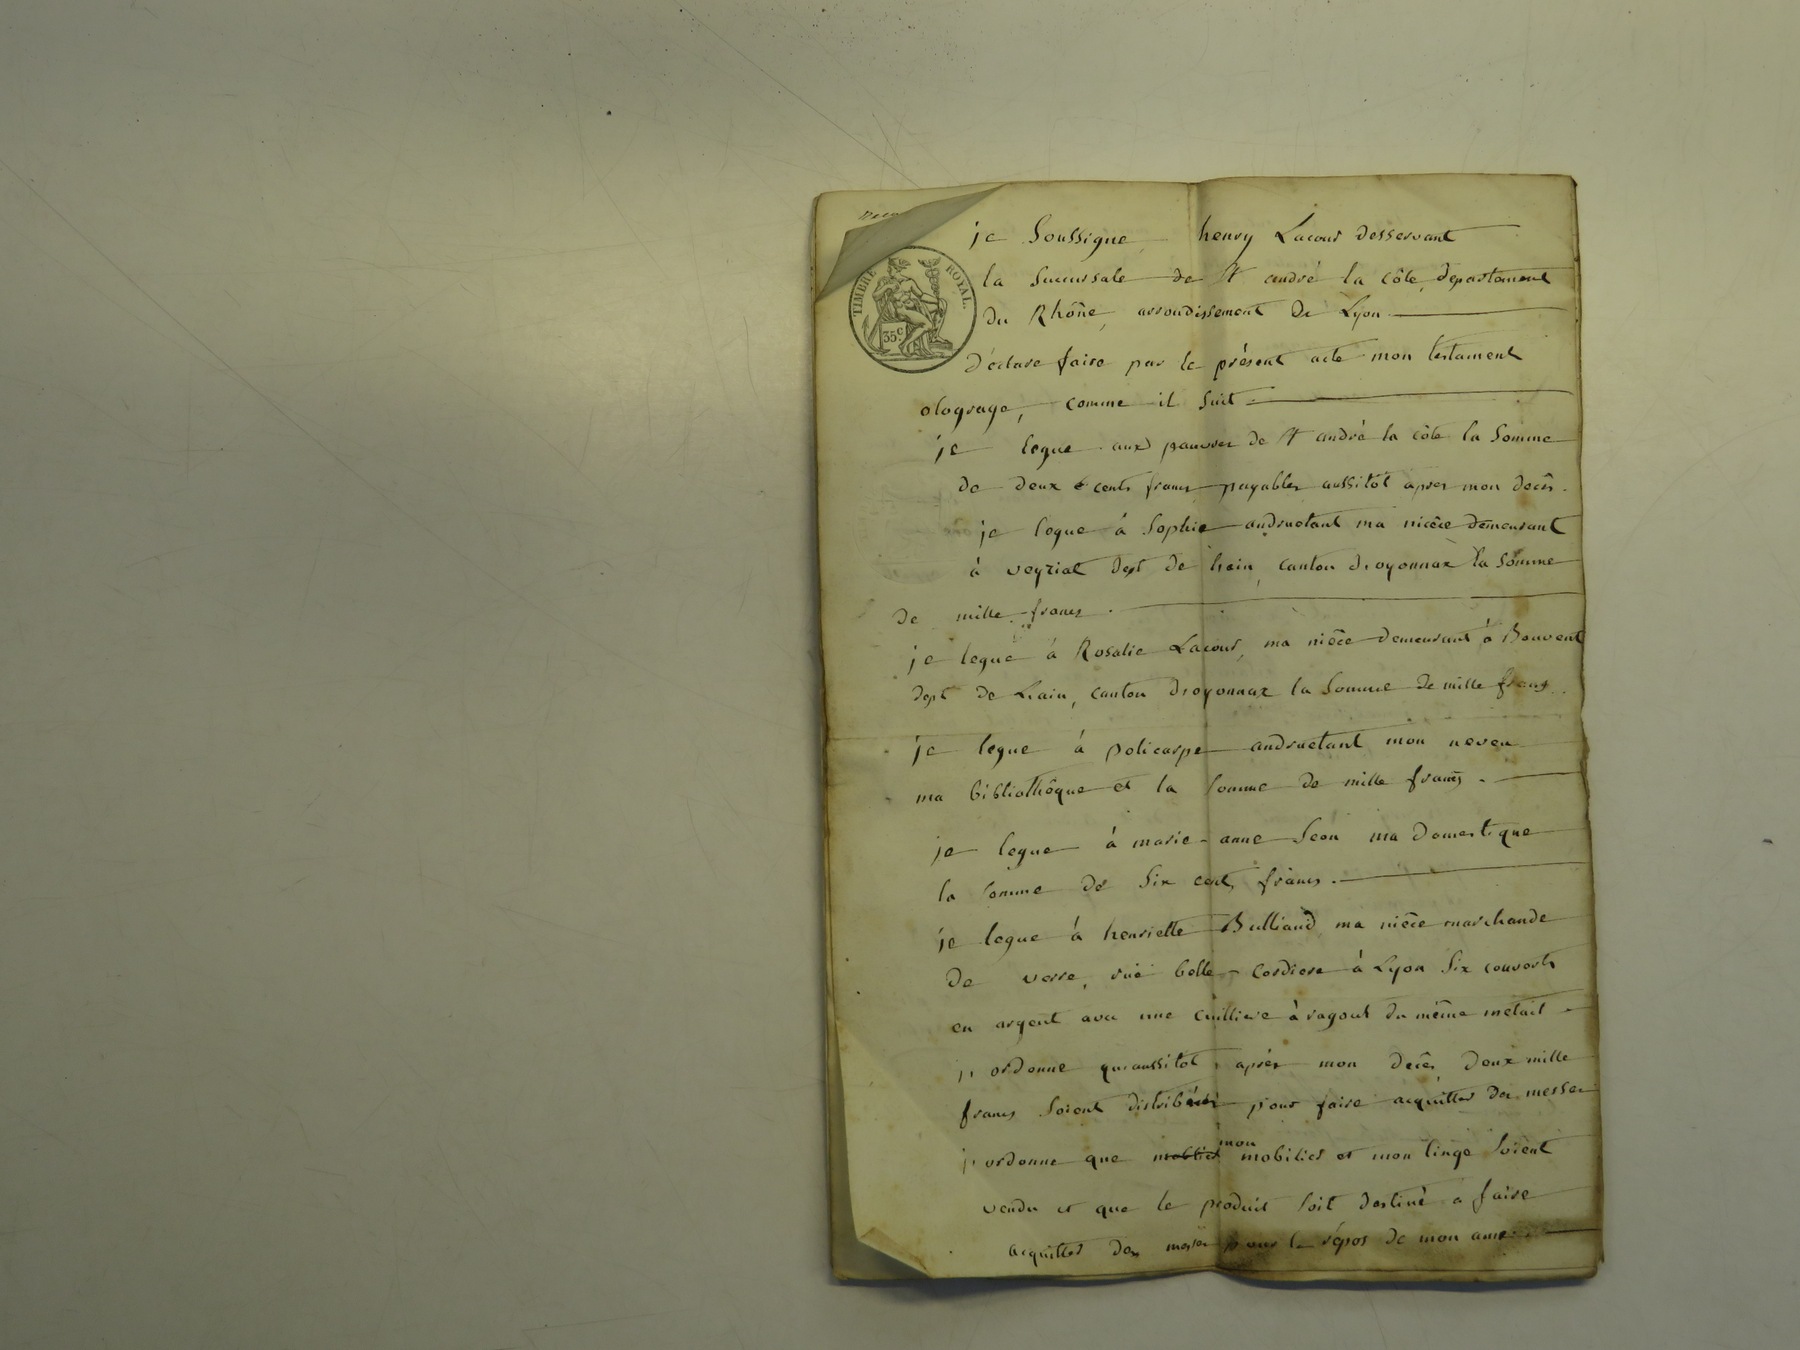 TIMBRE ROYAL.
35c
je Soussigne henry Lacour desservant
la Succursale de St andré la côte, departement
du Rhône, arrondissement de Lyon
déclare faire par le présent acte mon testament
olograge, comme il suit
je legue aux pauvres de St andré la côte la Somme
de deux cents francs payables aussitot apres mon decès.
je legue à Sophie andruetant ma nièce demeurant
à veyziat dept de lain, canton d'oyonnax la Somme
de mille francs.
je legue à Rosalie Lacour, ma nièce demeurant à Bouvent
dept de Lain, canton d'oyonnax la Somme de mille francs
je legue à policarpe andruetant mon neveu
ma bibliothêque et la Somme de mille francs.
je legue à marie-anne Séon ma domestique
la Somme de Six cents francs.
je legue à henriette Bulliaud ma nièce marchande
de verre, rue belle-Cordiere à Lyon Six couverts
en argent avec une cuilliere à ragout du même métail
j'ordonne qu'aussitot après mon decès deux mille
francs Soient pour faire acquitter des messes
j'ordonne que mon mobilier et mon linge Soient
vendu et que le produit Soit destiné à faire
acquitter des messes pour le répos de mon ame.